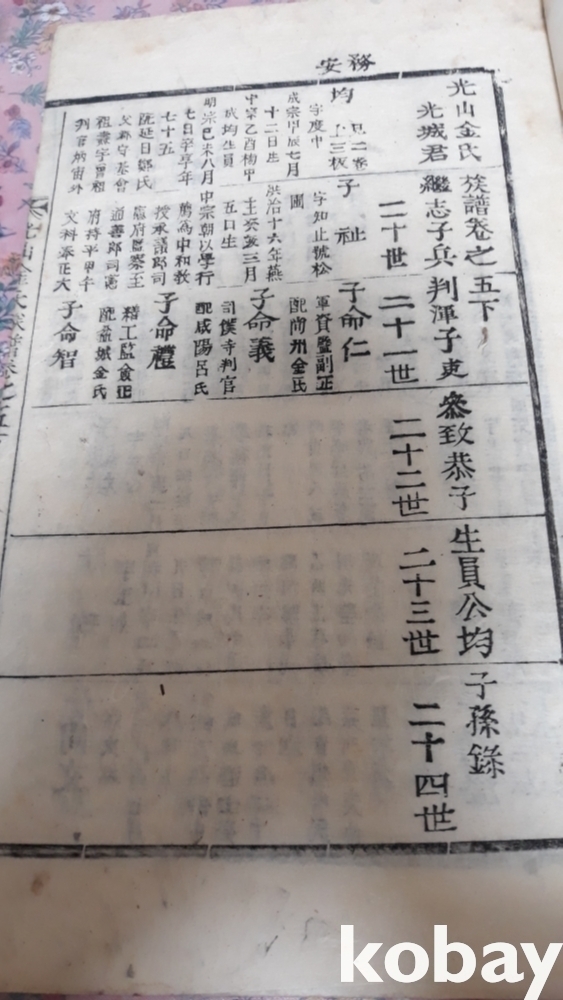 務安
光山金氏族譜卷之五下
光城君繼志子兵判渾子吏參致恭子生員公均子孫錄
二十世
二十一世
二十二世
二十三世
二十四世
均
見二卷
上三板
字度中
成宗甲辰七月
十二日生
中宗乙酉補中
成均生員
明宗己未八月
七日卒享年
七十五
子祉
字知止號松
圃
弘治十六年燕
五口生
中宗朝以學行
薦爲中和敎
授承議郞司
憲府監察王
通善郞司憲
府持平甲午
文科奉正大
子命仁
軍資監副正
配尙州金氏
子命義
司僕寺判官
配咸陽呂氏
子命禮
繕工監僉正
配益城金氏
子命智
kobay